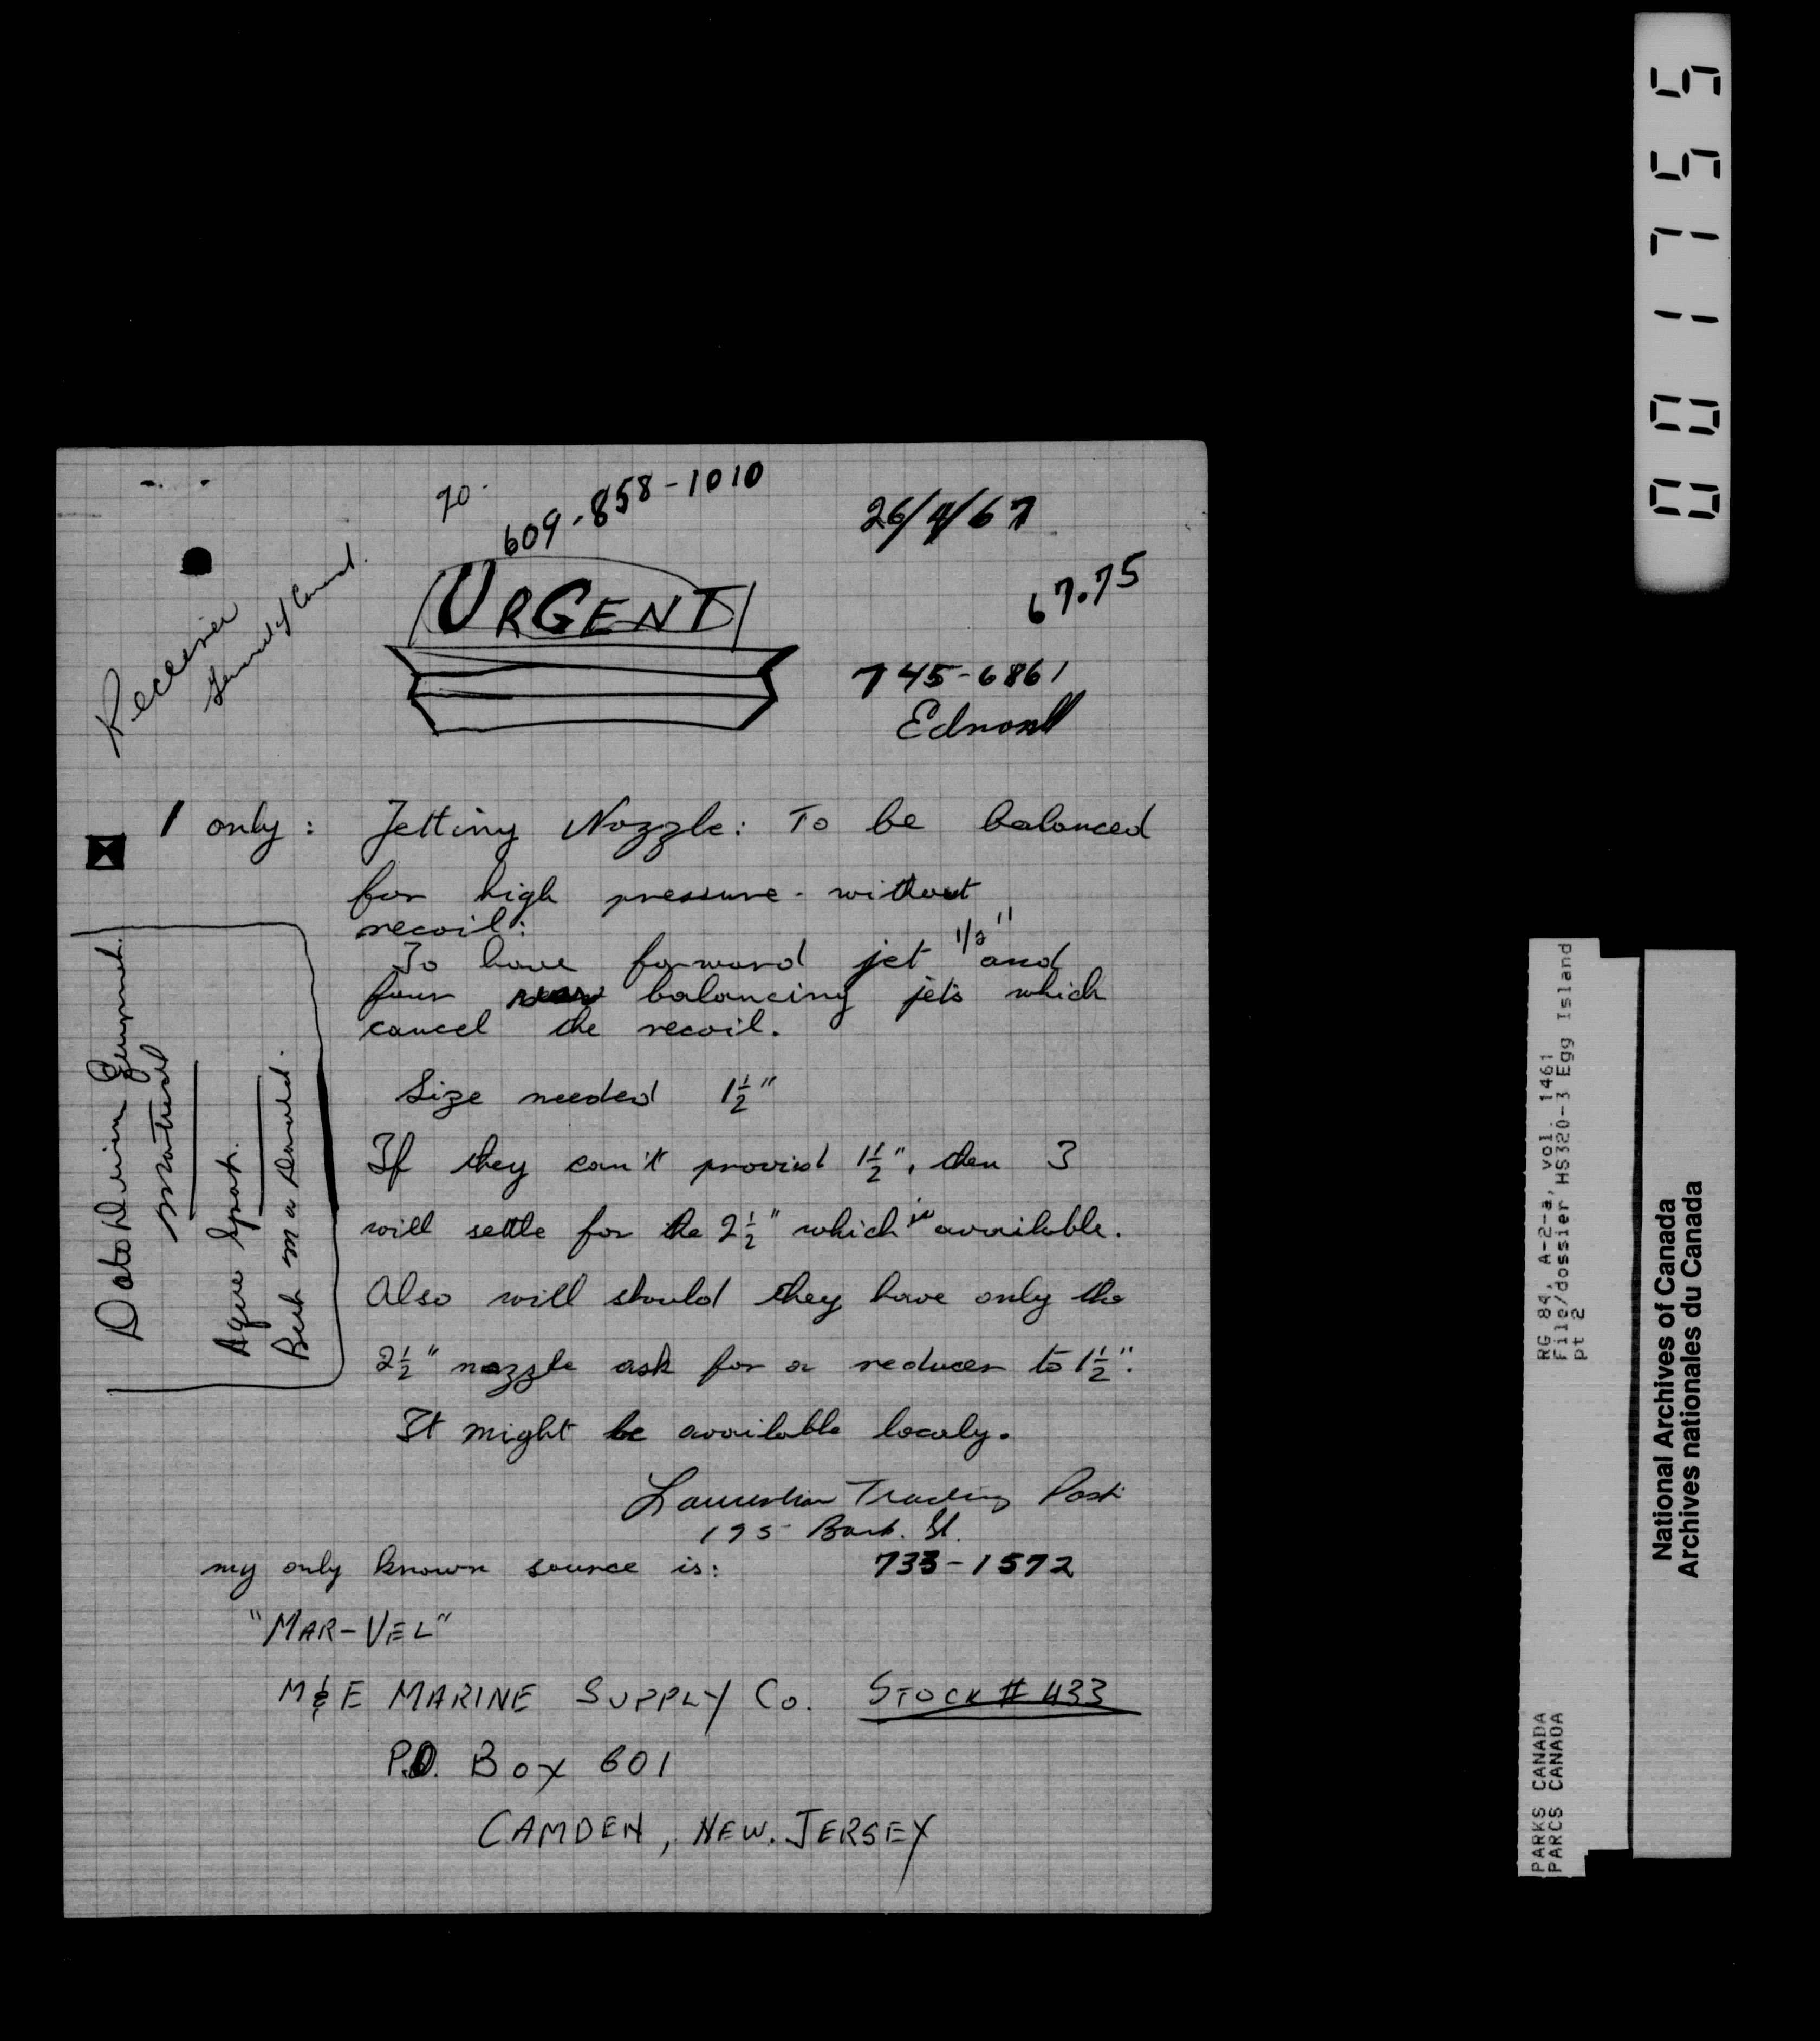 70-
609-858-1010
26/4/67
URGENT
67.75
745-6861
Receiver
1 only: Jetting Nozzle: To be balanced
for high pressure - without
recoil:
To have forward jet 1/2" and
four balancing jets which
cancel the recoil.
Size needed 1½"
If they can't provid 1½", then I
will settle for the 2½" which is available.
Also will should they have only the
2½" nozzle ask for a reducer to 1½".
It might be available localy.
Laurentian Trading Post
195 Bank. St.
my only known source is: 733-1572
"MAR-VEL"
M&E MARINE SUPPLY Co. STOCK # 433
P.O. BOX 601
CAMDEN, NEW. JERSEY
001755
RG 84, A-2-a, vol. 1461
File/dossier HS320-3 Egg Island
pt 2
PARKS CANADA
PARCS CANADA
National Archives of Canada
Archives nationales du Canada